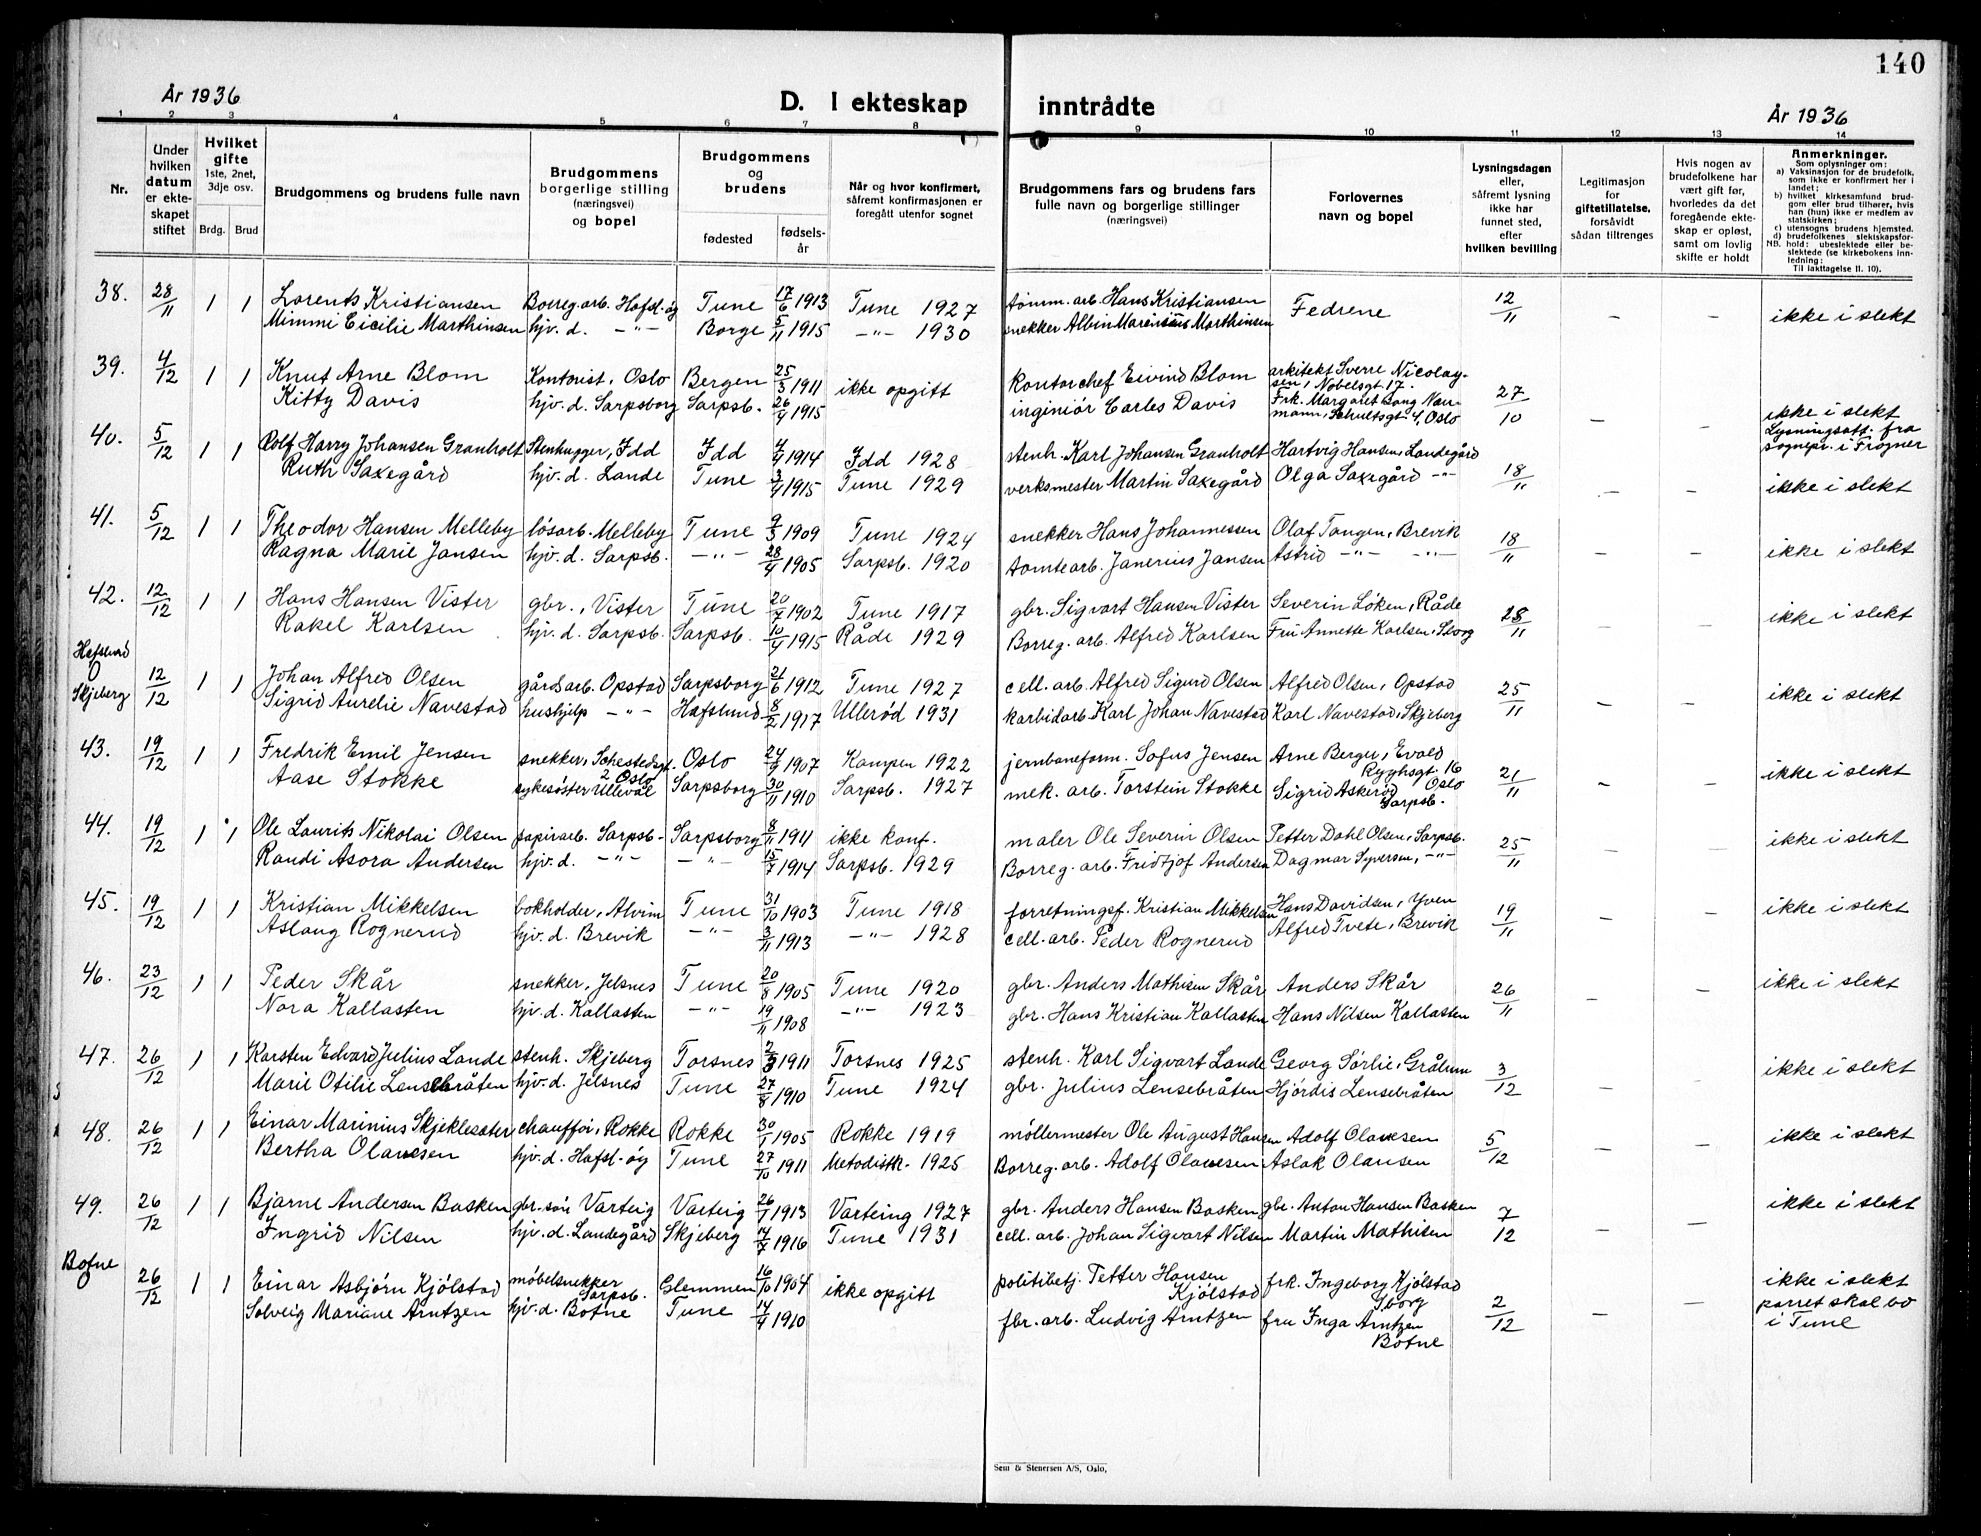 140
År 1936
D. I ekteskap inntrådte
År 1936
1 2 3 4 5 6 7 8 9 10 11 12 13 14
Nr.
Under hvilken datum er ekteskapet stiftet
Hvilket gifte 1ste, 2net, 3dje osv.
Brdg. Brud
Brudgommens og brudens fulle navn
Brudgommens borgerlige stilling (næringsvei) og bopel
Brudgommens og brudens
fødested
fødselsår
Når og hvor konfirmert, såfremt konfirmasjonen er foregått utenfor sognet
Brudgommens fars og brudens fars fulle navn og borgerlige stillinger (næringsvei)
Forlovernes navn og bopel
Lysningsdagen eller, såfremt lysning ikke har funnet sted, efter hvilken bevilling
Legitimasjon for giftetillatelse, forsåvidt sådan tiltrenges
Hvis nogen av brudefolkene har vært gift før, hvorledes da det foregående ekteskap er opløst, samt om lovlig skifte er holdt
Anmerkninger.
Som oplysninger om:
a) Vaksinasjon for de brudefolk, som ikke er konfirmert her i landet;
b) hvilket kirkesamfund brudgom eller brud tilhører, hvis han (hun) ikke er medlem av statskirken;
c) utensogns brudens hjemsted.
d) brudefolkenes slektskapsforhold: ubeslektede eller beslektede (se kirkebokens innledning:
NB.
Til iakttagelse II. 10).
38. 28/11 1 1 Lorents Kristiansen Borreg. arb. Hafsl.øy Tune 17/6 1913 Tune 1927 tømm. arb. Hans Kristiansen Fedrene 12/11 – – ikke i slekt
Mimmi Cicilie Marthinsen hjv. d. -"- Borge 5/11 1915 -"- 1930 snekker Albin Marensius Marthinsen
39. 4/12 1 1 Knut Arne Blom Kontorist, Oslo Bergen 25/3 1911 ikke opgitt kontorchef Eivind Blom arkitekt Sverre Nicolaysen, Nobelsgt 17. 27/10 – – ikke i slekt
Kitty Davis hjv. d. Sarpsborg Sarpsb. 26/4 1915 ingeniør Carles Davis Frk. Margaret Bang Nærmann, Schultsgt 4, Oslo Lysningsatt. fra sognepr. i Frogner
40. 5/12 1 1 Rolf Harry Johansen Granholt Stenhugger, Idd Idd 4/4 1914 Idd 1928 stenh. Karl Johansen Granholt Hartvig Hansen, Landegård 18/11 – – ikke i slekt
Ruth Saxegård hjv. d. Lande Tune 3/4 1915 Tune 1929 verksmester Martin Saxegård Olga Saxegård -"-
41. 5/12 1 1 Theodor Hansen Melleby løsarb. Melleby Tune 9/3 1909 Tune 1924 snekker Hans Johannessen Olaf Tangen, Brevik 18/11 – – ikke i slekt
Ragna Marie Jansen hjv. d. Sarpsb. -"- 28/4 1905 Sarpsb. 1920 tomtearb. Janerius Jansen Astrid -"- -"-
42. 12/12 1 1 Hans Hansen Vister gbr., Vister Tune 20/7 1902 Tune 1917 gbr. Sigvart Hansen Vister Severin Løken, Råde 28/11 – – ikke i slekt
Rakel Karlsen hjv. d. Sarpsb. Sarpsb. 10/4 1915 Råde 1929 Borreg. arb. Alfred Karlsen Fru Annette Karlsen, Sborg
Hafslund
0 Skjeberg 12/12 1 1 Johan Alfred Olsen gårdsarb. Opstad Sarpsborg 21/6 1912 Tune 1927 cell. arb. Alfred Sigurd Olsen Alfred Olsen, Opstad 25/11 – – ikke i slekt
Sigrid Aurelie Navestad hushjelp -"- Hafslund 8/2 1917 Ullerød 1931 karbidarb. Karl Johan Navestad Karl Navestad, Skjeberg
43. 19/12 1 1 Fredrik Emil Jensen snekker, Schestedsgt. 2 Oslo Oslo 24/9 1907 Kampen 1922 jernbaneform. Sofus Jensen Arne Berger, Evald Ryghsgt. 16 Oslo 21/11 – – ikke i slekt
Aase Stokke sykesøster Ullevål Sarpsborg 30/11 1910 Sarpsb. 1927 mek. arb. Torstein Stokke Sigrid Askerød Sarpsb.
44. 19/12 1 1 Ole Laurits Nikolai Olsen papirarb. Sarpsb. Sarpsborg 8/11 1911 ikke konf. maler Ole Severin Olsen Petter Dahl Olsen, Sarpsb. 25/11 – – ikke i slekt
Randi Asora Andersen hjv. d. -"- -"- 15/7 1914 Sarpsb. 1929 Borreg. arb. Fridtjof Andersen Dagmar Syversen, -"-
45. 19/12 1 1 Kristian Mikkelsen bokholder, Alvim Tune 31/10 1903 Tune 1918 forretningsf. Kristian Mikkelsen Hans Davidsen, Yven 19/11 – – ikke i slekt
Aslaug Rognerud hjv. d. Brevik -"- 3/11 1913 -"- 1928 cell. arb. Peder Rognerud Alfred Tvete, Brevik
46. 23/12 1 1 Peder Skår snekker, Jelsnes Tune 20/8 1905 Tune 1920 gbr. Anders Mathisen Skår Anders Skår 26/11 – – ikke i slekt
Nora Kallasten hjv. d. Kallasten -"- 19/11 1908 -"- 1923 gbr. Hans Kristian Kallasten Hans Nilsen Kallasten
47. 26/12 1 1 Karsten Edvard Julius Lande stenh. Skjeberg Torsnes 2/3 1911 Torsnes 1925 stenh. Karl Sigvart Lande Georg Sørlie, Grålum 3/12 – – ikke i slekt
Marie Otilie Lensebråten hjv. d. Jelsnes Tune 27/8 1910 Tune 1924 gbr. Julius Lensebråten Hjørdis Lensebråten
48. 26/12 1 1 Einar Marinius Skjeklesæter chauffør, Rokke Rokke 30/1 1905 Rokke 1919 møllermester Ole August Hansen Adolf Olausen 5/12 – – ikke i slekt
Bertha Olausen hjv. d. Hafsl.øy Tune 27/10 1911 Metodistk. 1925 Borreg. arb. Adolf Olausen Aslak Olausen
49. 26/12 1 1 Bjarne Andersen Basken gbr. søn Varteig Varteig 26/1 1913 Varteing 1927 gbr. Anders Hansen Basken gbr. Anton Hansen Basken 7/12 – – ikke i slekt
Ingrid Nilsen hjv. d. Landegård Skjeberg 14/7 1916 Tune 1931 cell. arb. Johan Sigvart Nilsen Martin Mathisen
Botne
0 26/12 1 1 Einar Asbjørn Kjølstad møbelsnekker Sarpsb. Glemmen 16/10 1904 ikke opgitt politibetj. Petter Hansen Kjølstad frk. Ingeborg Kjølstad Sborg 2/12 – – ikke i slekt
Solveig Mariane Arntzen hjv. d. Botne Tune 14/4 1910 fbr. arb. Ludvig Arntzen fru Inga Arntzen Botne parret skal bo i Tune
Sem & Stenersen A/S, Oslo,